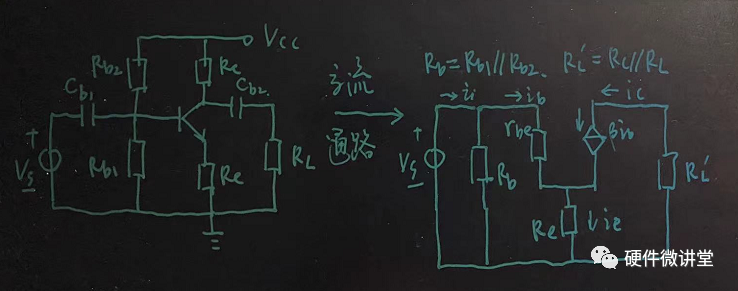 Vcc
Rb2
Rc
Cb1
Cb2
+
Vs
Rb1
Re
RL
交流
通路
Rb=Rb1//Rb2. RL'=Rc//RL
→ii
→ib
←ic
+
Vs
rbe
↓βib
Rb
RL'
Re
↓ie
硬件微讲堂